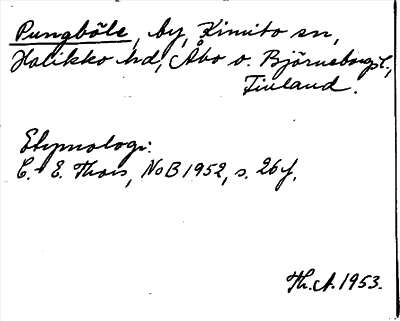 Pungböle, by, Kimito sn,
Halikko hd, Åbo o. Björneborgs l.,
Finland.
Etymologi:
C.-E. Thors, NoB 1952, s. 26 f.
Th. A. 1953.